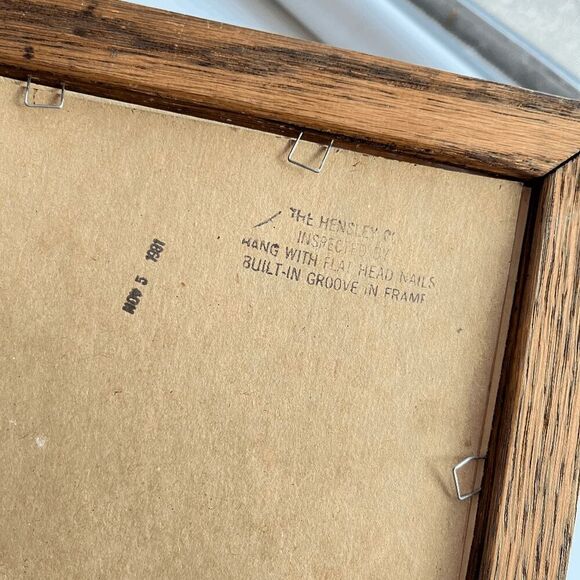 THE HENSLEY
INSPECTED BY
HANG WITH FLAT HEAD NAILS
BUILT-IN GROOVE IN FRAME
NOV 5 1981